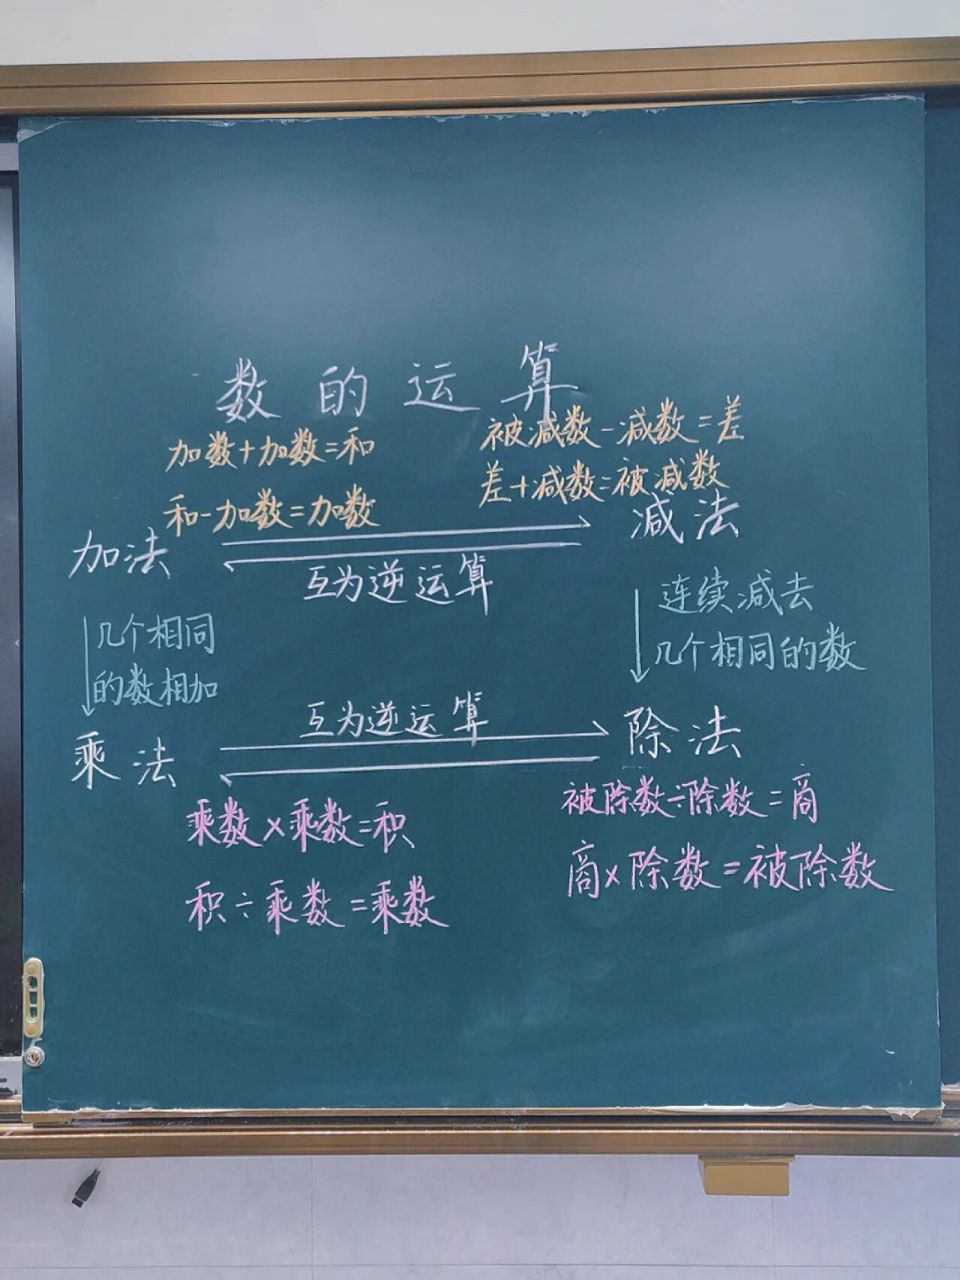 数的运算
加数+加数=和
被减数-减数=差
和-加数=加数
差+减数=被减数
加法
减法
互为逆运算
几个相同
的数相加
连续减去
几个相同的数
互为逆运算
乘法
除法
乘数×乘数=积
被除数÷除数=商
积÷乘数=乘数
商×除数=被除数